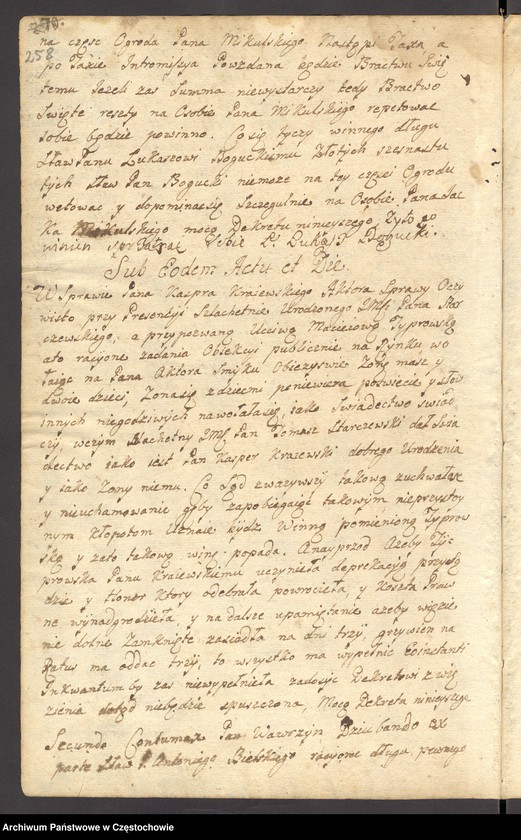 270.
258
na częsc Ogroda Pana Mikulskiego Nastąpi Taxa a
po Taxie Intromissya Powzdana będzie Bractwu Swię
temu Jezeli zas Summa niewystarczy tedy Bractwo
Swięte reszty na Osobie Pana Mikulskiego repetowac
sobie będzie powinno. Co się tyczy winnego długu
Sław Panu Lukaszowi Boguckiemu Złotych szesnastu
tych Sław Pan Bogucki niemoze na tey częsci Ogrodu
wetowac y dopominacsię Szczegulnie na Osobie Pana Jac
ka Mikulskiego mocą Dekretu ninieyszego
winien Sobie P. Lukasz Bogucki.
Sub Eodem Actu et Die.
W Sprawie Pana Kaspra Kraiewskiego Aktora Sprawy Oczy
wisto przy Presencyi Szlachetnie Urodzonego JMP Pana Star
czewskiego, a przypozwaną Uczciwą Macieiową Typrowską
ato racyone zadania Obiekcyi publicznie na Rynku wo
łaiąc na Pana Aktora Zonę masz y
dwoie dzieci, Zonasię zdziecmi poniewiera poswiecie y słow
innych niegodziwych nawołałasię, iako Swiadectwo swiad
czy, wczym Szlachetny JMP. Pan Tomasz Starczewski dał Swia
dectwo iako iest Pan Kasper Kraiewski dobrego Urodzenia
y iako Zony niema. Co Sąd zwazywszy takową zuchwałosc
y nieuchamowanie gęby zapobiegaiąc takowym nieprzystoy
nym kłopotom Uznaie bydz Winną pomienioną Typrow
ską y zato takową winę popada. Anayprzod Azeby Ty
prowska Panu Kraiewskiemu uczyniła deprekacyą przy Są
dzie y Honor ktory odebrała powrociła, y Koszta Praw
ne wynadgrodziła, y na dalsze upamiętanie azeby więzie
nie dolne Zamknięte zasiadła na dni trzy, grzywien na
Ratus ma oddac trzy, to wszystko ma wypełnic Exinstanti
Inkwantum by zas niewypełniła zadosyc Dekretowi z wię
zienia dotąd niebędzie spuszczona, Mocą Dekretu ninieyszego
Secundo Contumax Pan Wawrzyn Dziubando ex
parte Sław P. Antoniego Bielskiego racyone długu pewnego
Archiwum Państwowe w Częstochowie